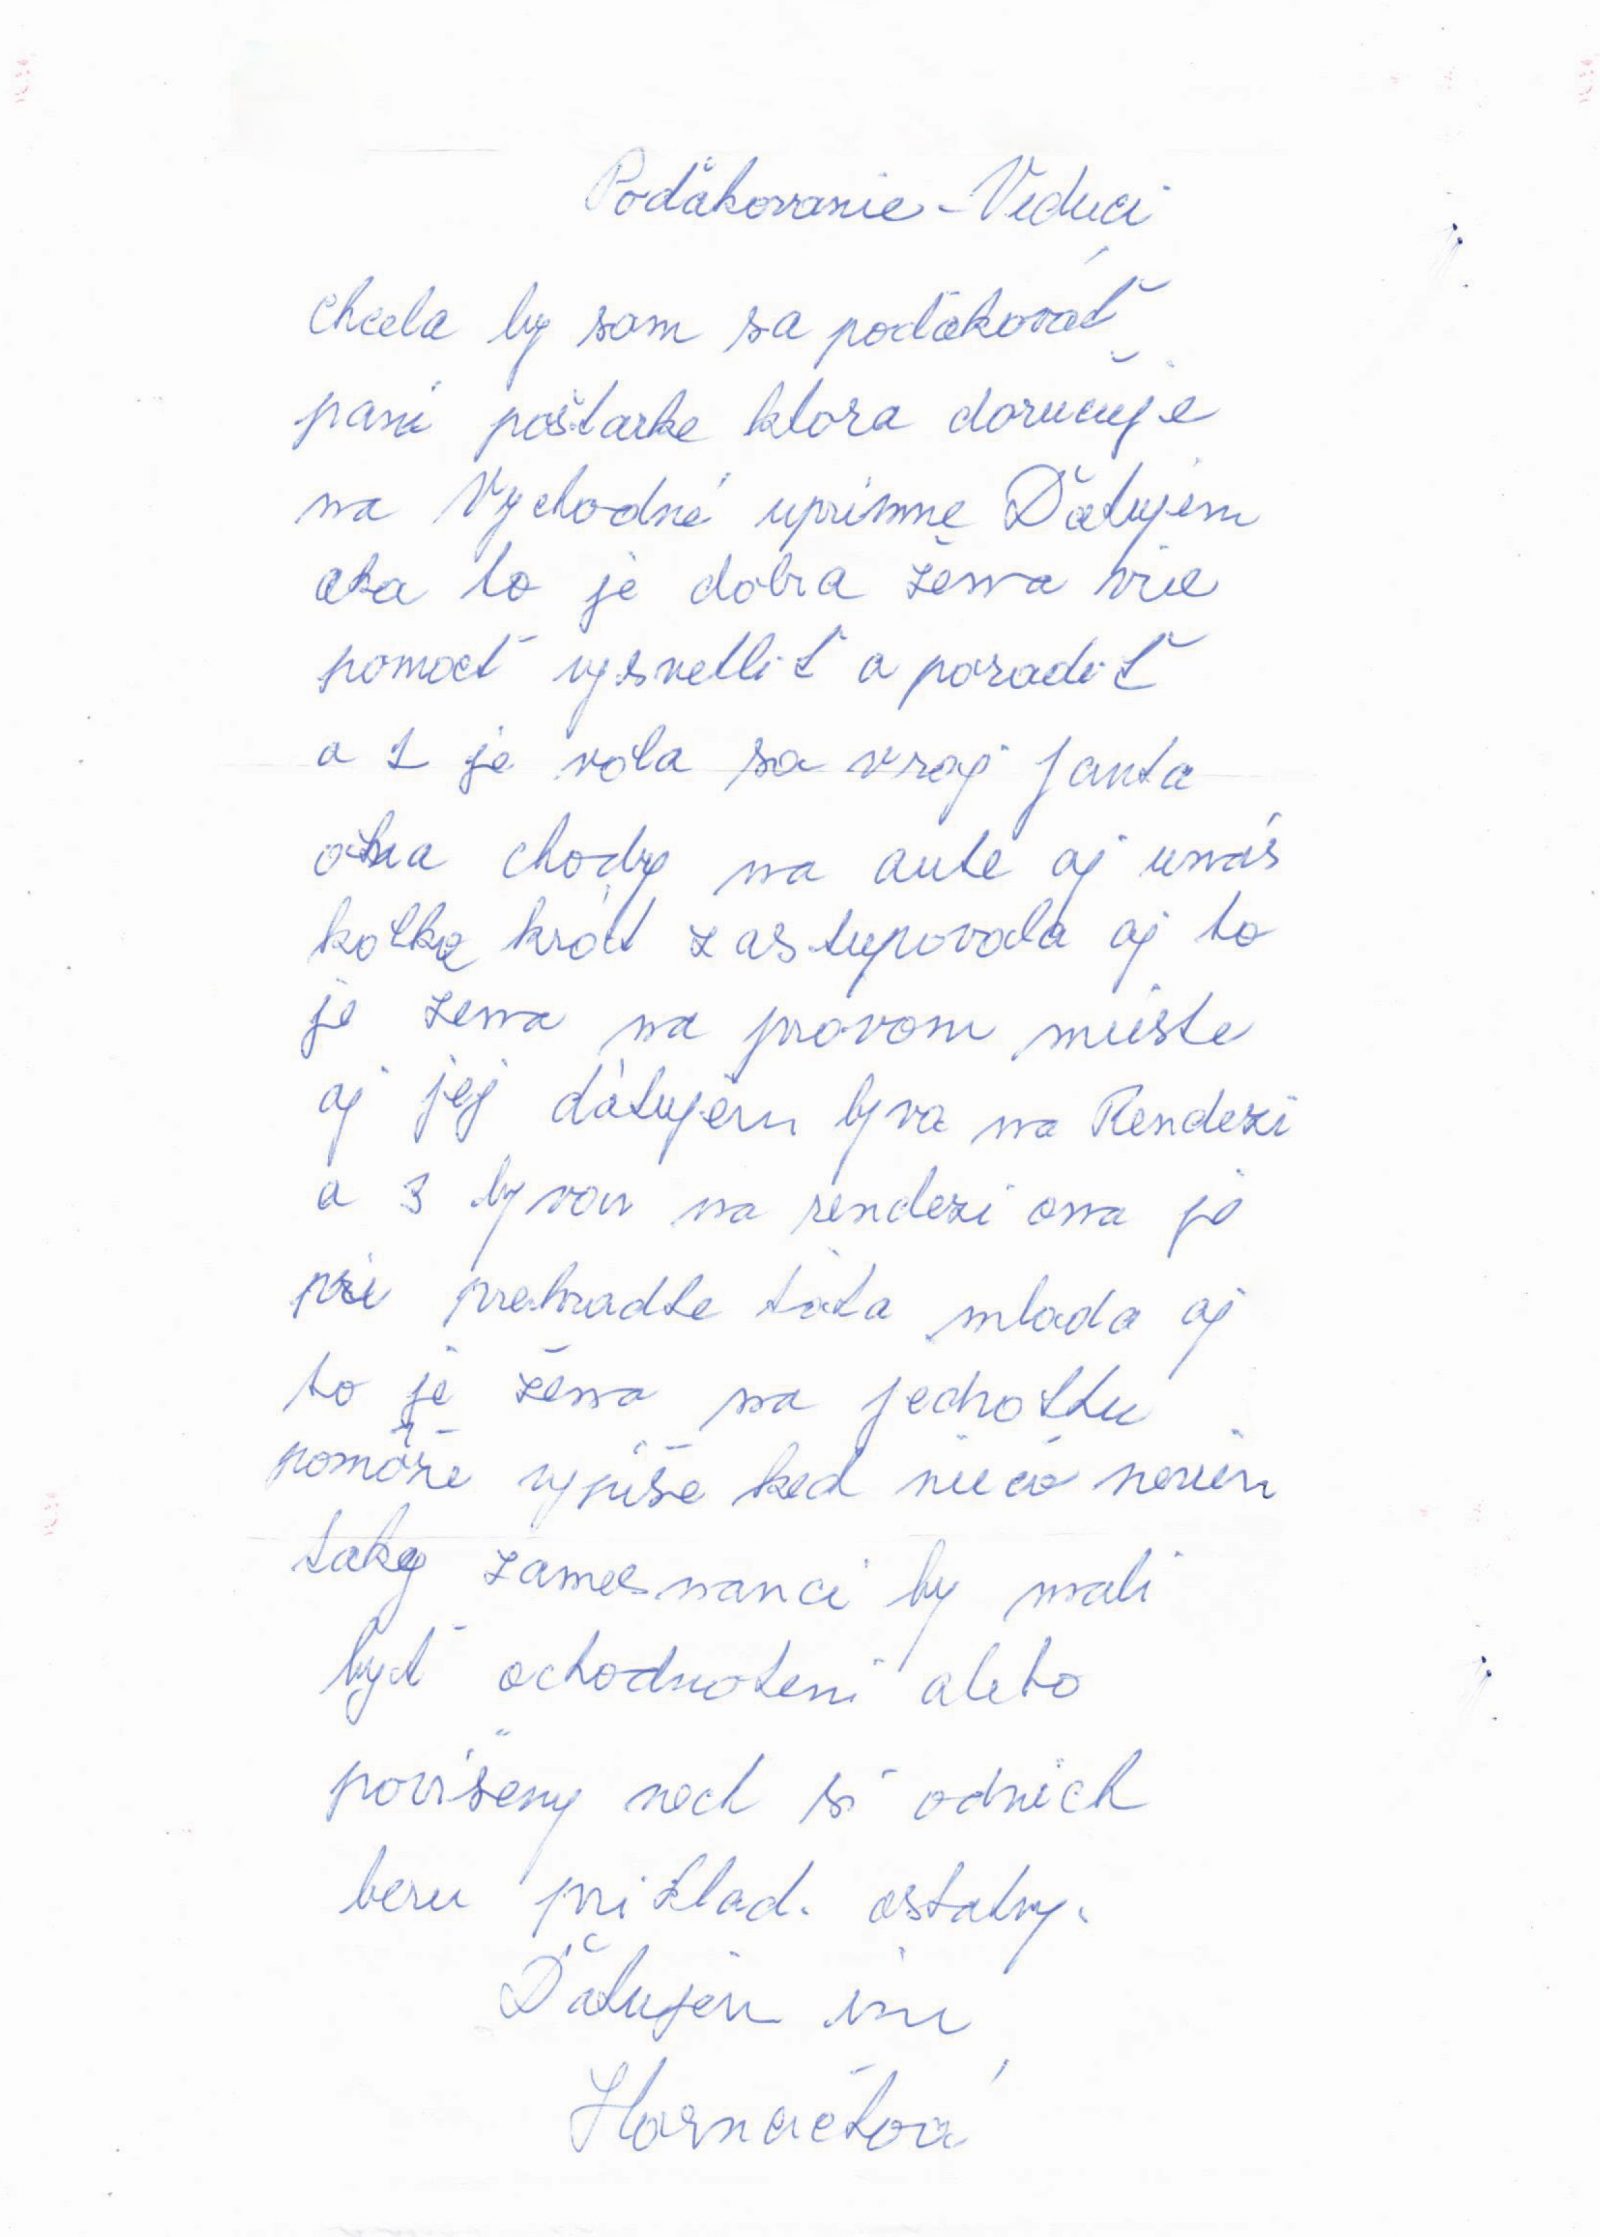 Poďakovanie - Veduci
chcela by som sa poďakovať
pani poštarke ktora doručuje
na Vychodné uprimne Ďakujem
aka to je dobra žena vie
pomocť vysvetliť a poradiť
a 2 je vola sa vraj Janka
ona chody na aute aj unás
kolko krát zastupovala aj to
je žena na pravom mieste
aj jej dákujem byva na Rendezi
a 3 byvau na rendezi ona je
pri prehradke táta mlada aj
to je žena na jednotku
pomôže vypíše ked niečo neviem
taky zamesnanci by mali
byť ochodnoteni alebo
povišeny nech si odnich
beru priklad. ostatny.
Ďakujem im
Hornačková